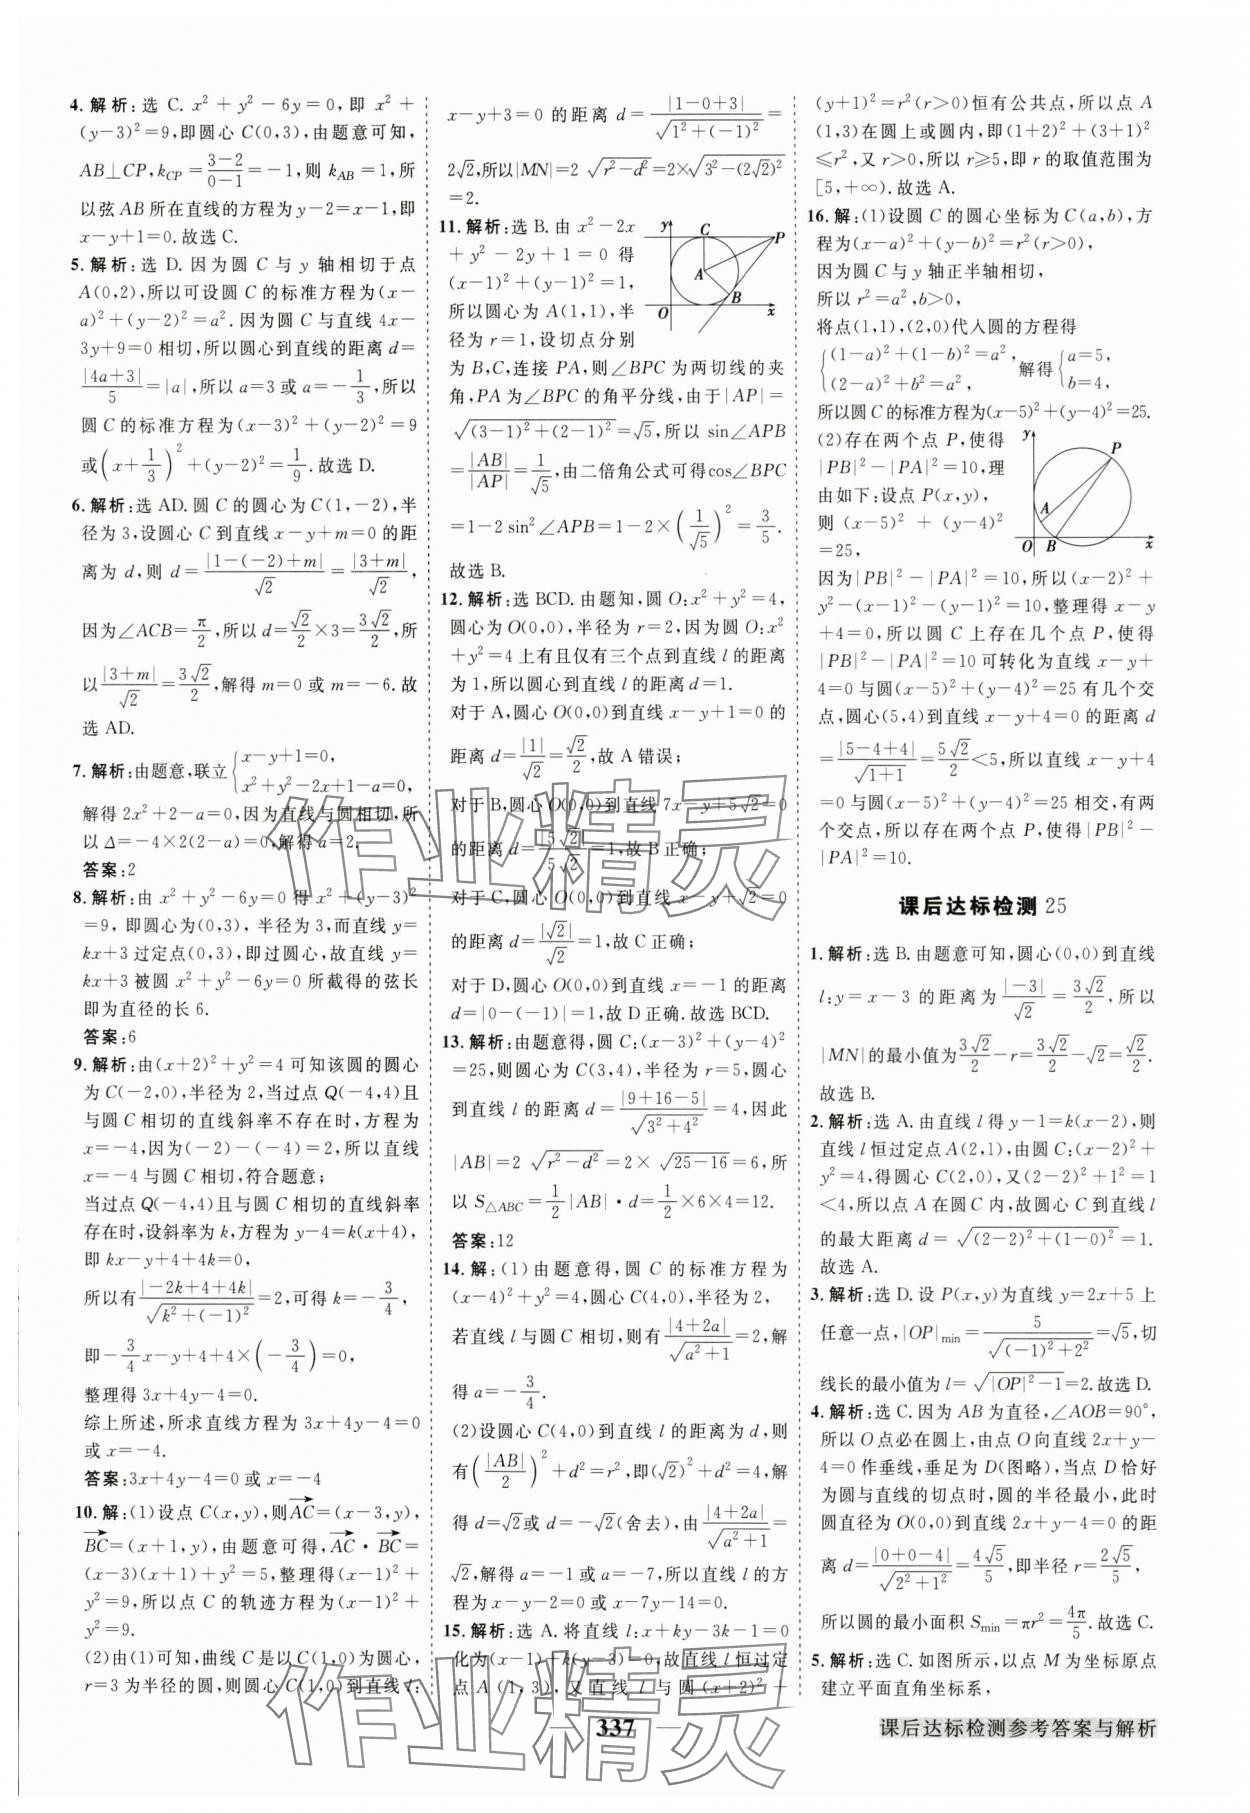 4. 解析:选 C. x²+y²-6y=0,即 x²+
(y-3)²=9,即圆心 C(0,3),由题意可知,
AB⊥CP,k_CP=(3-2)/(0-1)=-1,则 k_AB=1,所
以弦 AB 所在直线的方程为 y-2=x-1,即
x-y+1=0.故选 C.
5. 解析:选 D.因为圆 C 与 y 轴相切于点
A(0,2),所以可设圆 C 的标准方程为(x-
a)²+(y-2)²=a².因为圆 C 与直线 4x-
3y+9=0 相切,所以圆心到直线的距离 d=
|4a+3|/5=|a|,所以 a=3 或 a=-1/3,所以
圆 C 的标准方程为(x-3)²+(y-2)²=9
或(x+1/3)²+(y-2)²=1/9.故选 D.
6. 解析:选 AD.圆 C 的圆心为 C(1,-2),半
径为 3,设圆心 C 到直线 x-y+m=0 的距
离为 d,则 d=|1-(-2)+m|/√2=|3+m|/√2,
因为∠ACB=π/2,所以 d=√2/2×3=3√2/2,所
以|3+m|/√2=3√2/2,解得 m=0 或 m=-6.故
选 AD.
7. 解析:由题意,联立{x-y+1=0,
x²+y²-2x+1-a=0,
解得 2x²+2-a=0,因为直线与圆相切,所
以 Δ=-4×2(2-a)=0,解得 a=2.
答案:2
8. 解析:由 x²+y²-6y=0 得 x²+(y-3)²
=9,即圆心为(0,3),半径为 3,而直线 y=
kx+3 过定点(0,3),即过圆心,故直线 y=
kx+3 被圆 x²+y²-6y=0 所截得的弦长
即为直径的长 6.
答案:6
9. 解析:由(x+2)²+y²=4 可知该圆的圆心
为 C(-2,0),半径为 2,当过点 Q(-4,4)且
与圆 C 相切的直线斜率不存在时,方程为
x=-4,因为(-2)-(-4)=2,所以直线
x=-4 与圆 C 相切,符合题意;
当过点 Q(-4,4)且与圆 C 相切的直线斜率
存在时,设斜率为 k,方程为 y-4=k(x+4),
即 kx-y+4+4k=0,
所以有|-2k+4+4k|/√(k²+(-1)²)=2,可得 k=-3/4,
即-3/4x-y+4+4×(-3/4)=0,
整理得 3x+4y-4=0.
综上所述,所求直线方程为 3x+4y-4=0
或 x=-4.
答案:3x+4y-4=0 或 x=-4
10. 解:(1)设点 C(x,y),则AC→=(x-3,y),
BC→=(x+1,y),由题意可得,AC→·BC→=
(x-3)(x+1)+y²=5,整理得(x-1)²+
y²=9,所以 C 的轨迹方程为(x-1)²+
y²=9.
(2)由(1)可知,曲线 C 是以 C(1,0)为圆心,
r=3 为半径的圆,则圆心 C(1,0)到直线 l:
x-y+3=0 的距离 d=|1-0+3|/√(1²+(-1)²)=
2√2,所以|MN|=2√(r²-d²)=2×√(3²-(2√2)²)
=2.
11. 解析:选 B.由 x²-2x
+y²-2y+1=0 得
(x-1)²+(y-1)²=1,
所以圆心为 A(1,1),半
径为 r=1,设切点分别
为 B,C,连接 PA,则∠BPC 为两切线的夹
角,PA 为∠BPC 的角平分线,由于|AP|=
√((3-1)²+(2-1)²)=√5,所以 sin∠APB
=|AB|/|AP|=1/√5,由二倍角公式可得cos∠BPC
=1-2sin²∠APB=1-2×(1/√5)²=3/5.
故选 B.
y
C
P
A
B
O
x
12. 解析:选 BCD.由题知,圆 O:x²+y²=4,
圆心为 O(0,0),半径为 r=2,因为圆 O:x²
+y²=4 上有且仅有三个点到直线 l 的距离
为 1,所以圆心到直线 l 的距离 d=1.
对于 A,圆心 O(0,0)到直线 x-y+1=0 的
距离 d=|1|/√2=√2/2,故 A 错误;
对于 B,圆心 O(0,0)到直线 7x-y+5√2=0
的距离 d=|5√2|/5√2=1,故 B 正确;
对于 C,圆心 O(0,0)到直线 x-y+√2=0
的距离 d=|√2|/√2=1,故 C 正确;
对于 D,圆心 O(0,0)到直线 x=-1 的距离
d=|0-(-1)|=1,故 D 正确.故选 BCD.
13. 解析:由题意得,圆 C:(x-3)²+(y-4)²
=25,则圆心为 C(3,4),半径为 r=5,圆心
到直线 l 的距离 d=|9+16-5|/√(3²+4²)=4,因此
|AB|=2√(r²-d²)=2×√(25-16)=6,所
以 S△ABC=1/2|AB|·d=1/2×6×4=12.
答案:12
14. 解:(1)由题意得,圆 C 的标准方程为
(x-4)²+y²=4,圆心 C(4,0),半径为 2,
若直线 l 与圆 C 相切,则有|4+2a|/√(a²+1)=2,解
得 a=-3/4.
(2)设圆心 C(4,0)到直线 l 的距离为 d,则
有(|AB|/2)²+d²=r²,即(√2)²+d²=4,解
得 d=√2或 d=-√2(舍去),由|4+2a|/√(a²+1)=
√2,解得 a=-1 或 a=-7,所以直线 l 的方
程为 x-y-2=0 或 x-7y-14=0.
15. 解析:选 A.将直线 l:x+ky-3k-1=0
化为(x-1)+k(y-3)=0.故直线 l 恒过定
点 A(1,3),又直线 l 与圆(x+2)²+
(y+1)²=r²(r>0)恒有公共点,所以点 A
(1,3)在圆上或圆内,即(1+2)²+(3+1)²
≤r²,又 r>0,所以 r≥5,即 r 的取值范围为
[5,+∞).故选 A.
16. 解:(1)设圆 C 的圆心坐标为 C(a,b),方
程为(x-a)²+(y-b)²=r²(r>0),
因为圆 C 与 y 轴正半轴相切,
所以 r²=a²,b>0,
将点(1,1),(2,0)代入圆的方程得
{(1-a)²+(1-b)²=a²,
(2-a)²+b²=a², 解得{a=5,
b=4,
所以圆 C 的标准方程为(x-5)²+(y-4)²=25.
(2)存在两个点 P,使得
|PB|²-|PA|²=10,理
由如下:设点 P(x,y),
则(x-5)²+(y-4)²
=25,
y
P
A
O
B
x
因为|PB|²-|PA|²=10,所以(x-2)²+
y²-(x-1)²-(y-1)²=10,整理得 x-y
+4=0,所以圆 C 上存在几个点 P,使得
|PB|²-|PA|²=10 可转化为直线 x-y+
4=0 与圆(x-5)²+(y-4)²=25 有几个交
点,圆心(5,4)到直线 x-y+4=0 的距离 d
=|5-4+4|/√(1+1)=5√2/2<5,所以直线 x-y+4
=0 与圆(x-5)²+(y-4)²=25 相交,有两
个交点,所以存在两个点 P,使得|PB|²-
|PA|²=10.
课后达标检测 25
1. 解析:选 B.由题意可知,圆心(0,0)到直线
l:y=x-3 的距离为|-3|/√2=3√2/2,所以
|MN|的最小值为3√2/2-r=3√2/2-√2=√2/2.
故选 B.
2. 解析:选 A.由直线 l 得 y-1=k(x-2),则
直线 l 恒过定点 A(2,1),由圆 C:(x-2)²+
y²=4,得圆心 C(2,0),又(2-2)²+1²=1
<4,所以点 A 在圆 C 内,故圆心 C 到直线 l
的最大距离 d=√((2-2)²+(1-0)²)=1.
故选 A.
3. 解析:选 D.设 P(x,y)为直线 y=2x+5 上
任意一点,|OP|min=5/√((-1)²+2²)=√5,切
线长的最小值为 l=√(|OP|²-1)=2.故选 D.
4. 解析:选 C.因为 AB 为直径,∠AOB=90°,
所以 O 点必在圆上,由点 O 向直线 2x+y-
4=0 作垂线,垂足为 D(图略),当点 D 恰好
为圆与直线的切点时,圆的半径最小,此时
圆直径为 O(0,0)到直线 2x+y-4=0 的距
离 d=|0+0-4|/√(2²+1²)=4√5/5,即半径 r=2√5/5,
所以圆的最小面积 Smin=πr²=4π/5.故选 C.
5. 解析:选 C.如图所示,以点 M 为坐标原点
建立平面直角坐标系,
作业精灵
作业精灵
337
课后达标检测参考答案与解析